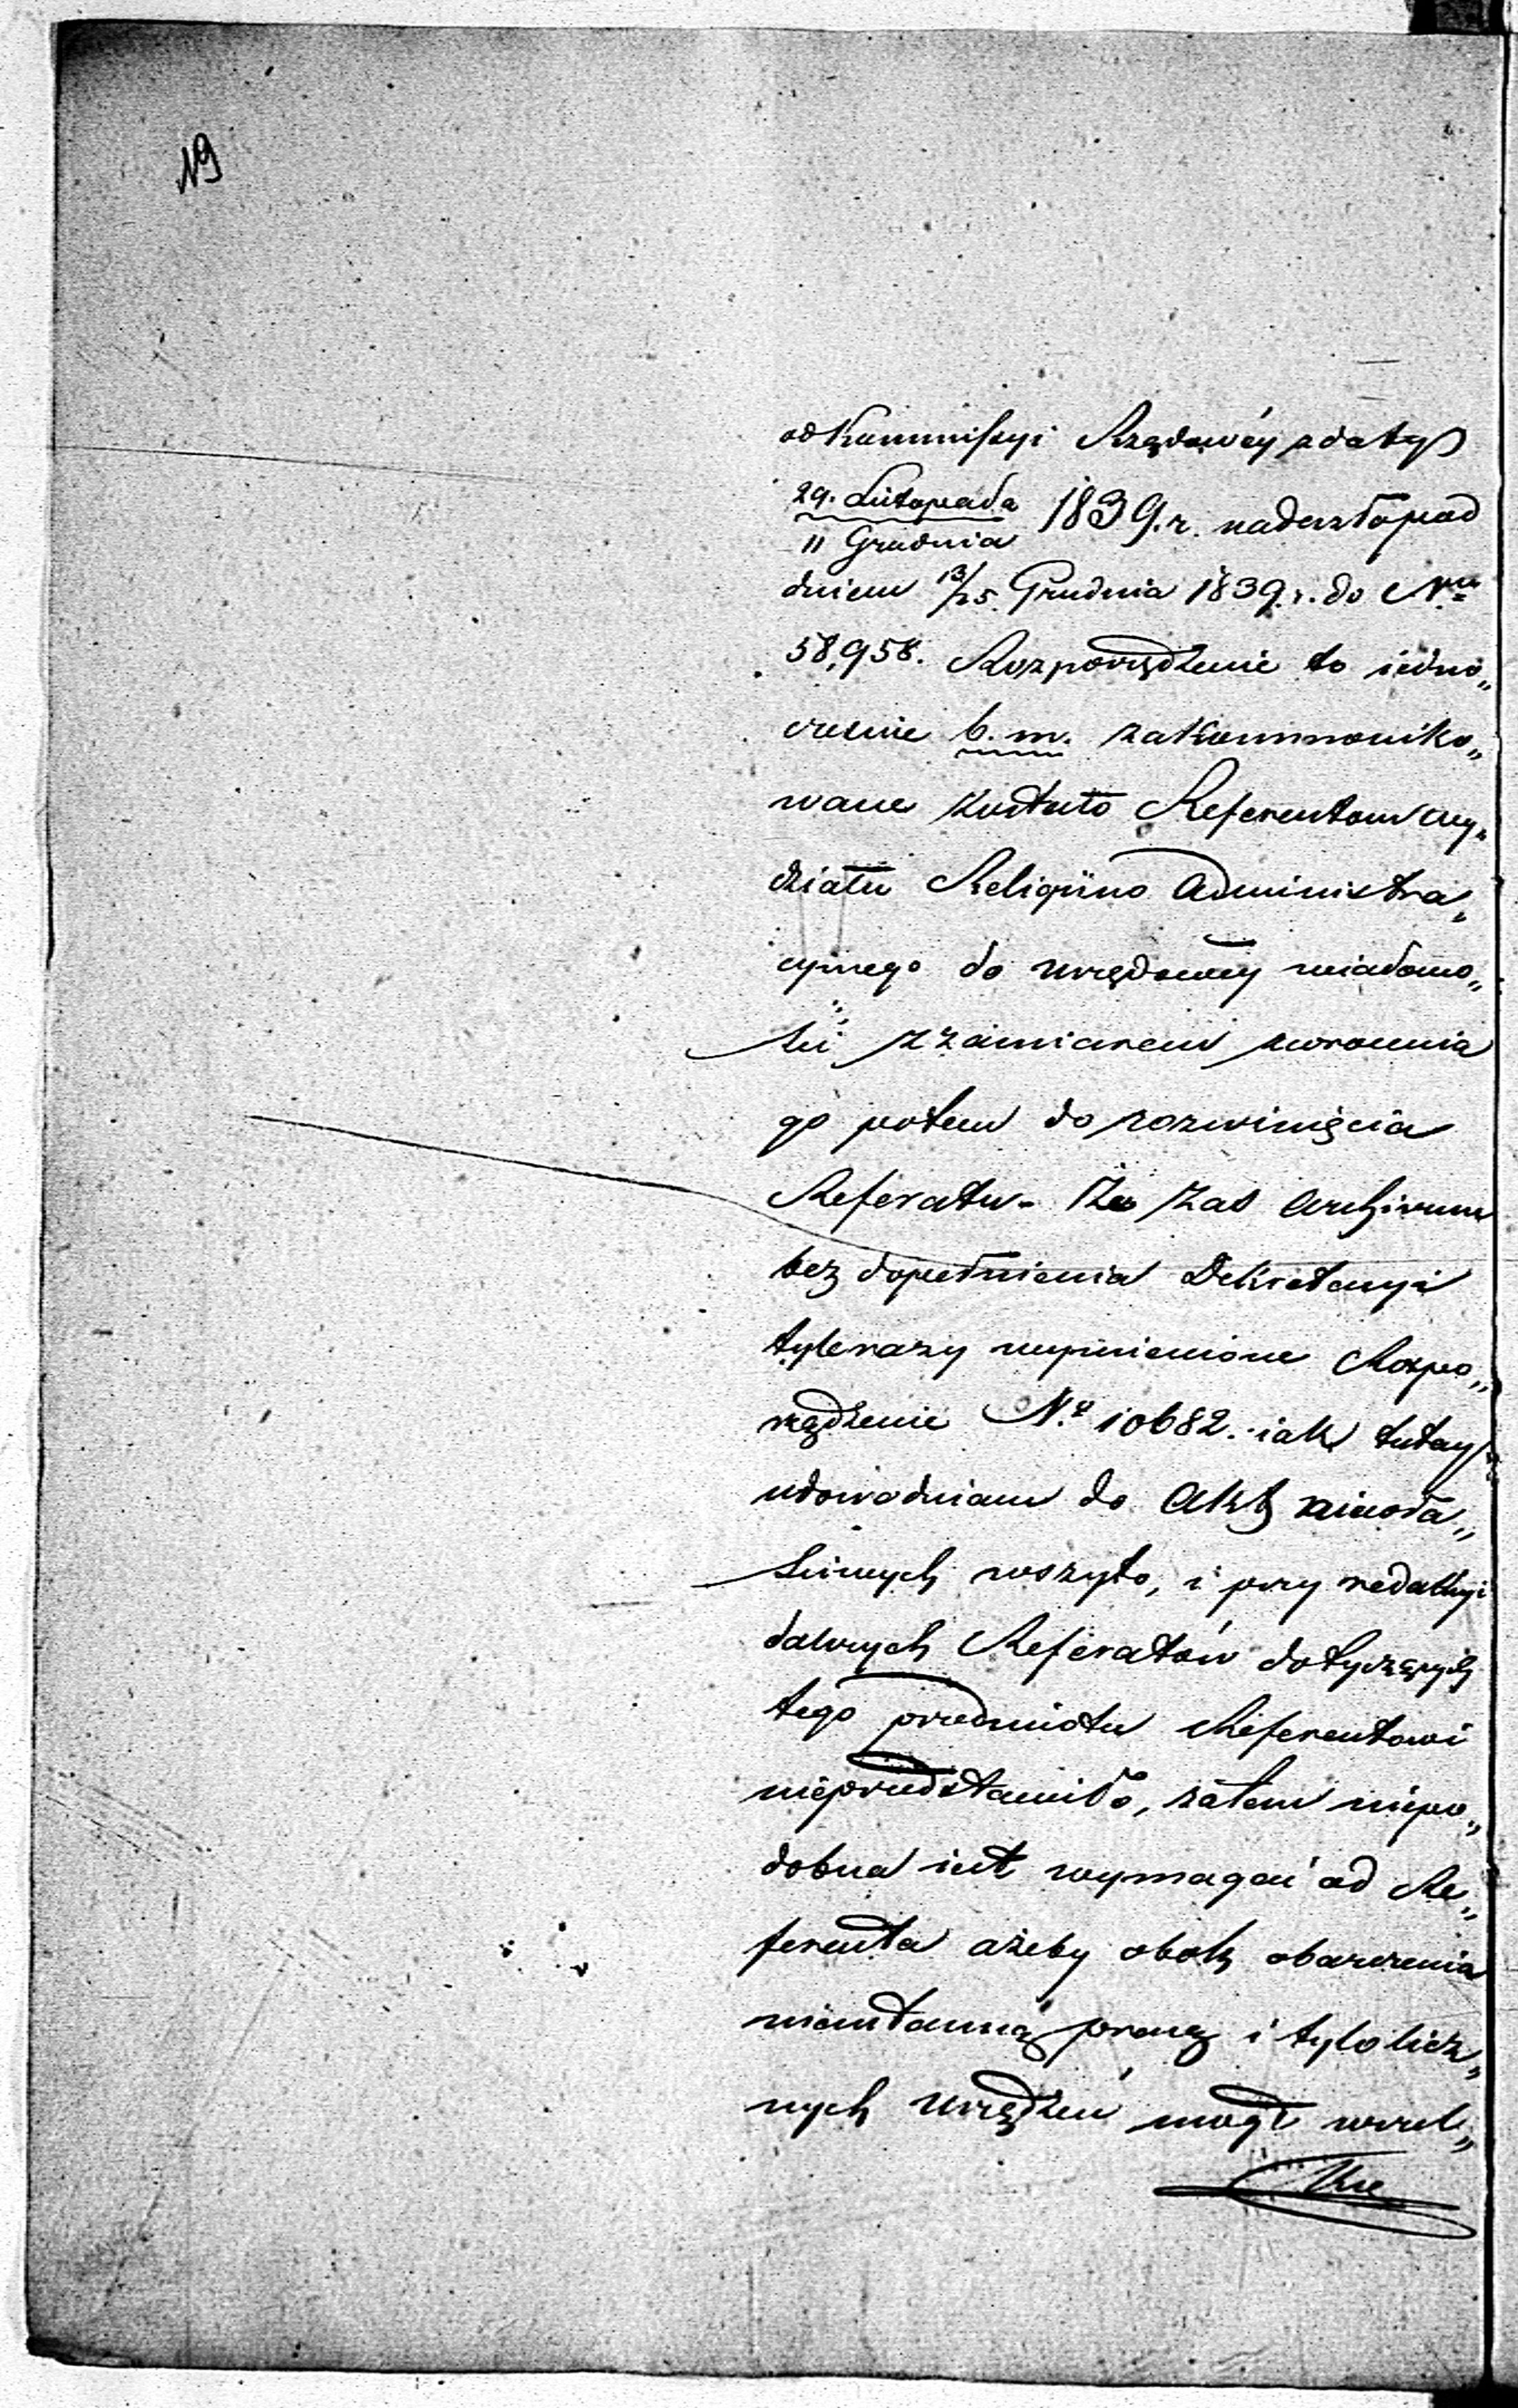 19
od Kommissyi Rządowéy z daty
29. Listopada 1839. r. nadeszło pod
11 Grudnia
dniem 13/25 Grudnia 1839. r. do Nru
58,958. Rozporządzenie to iedno„
cześnie b. m. zakommoniko„
wane zostało Referentom Wy„
działu Religiino Administra„
cyinego do urzędowéy wiadomo„
ści z zamiarem zwrócenia
go potem do rozwinięcia
Referatu. Że zaś Archivum
bez dopełnienia Dekretacyi
tylerazy wymienione Rozpo„
rządzenie Nr 10682. iak tutay
udowadniam do Akt
wszyto, i przy redakcyi
dalszych Referatów dotyczących
tego przedmiotu Referentowi
nieprzedstawiło, zatem niepo„
dobna iest wymagać od Re„
ferenta ażeby obok obarczenia
nieustanną pracą i tylolicz„
nych Urządzeń mógł wszel„
kie